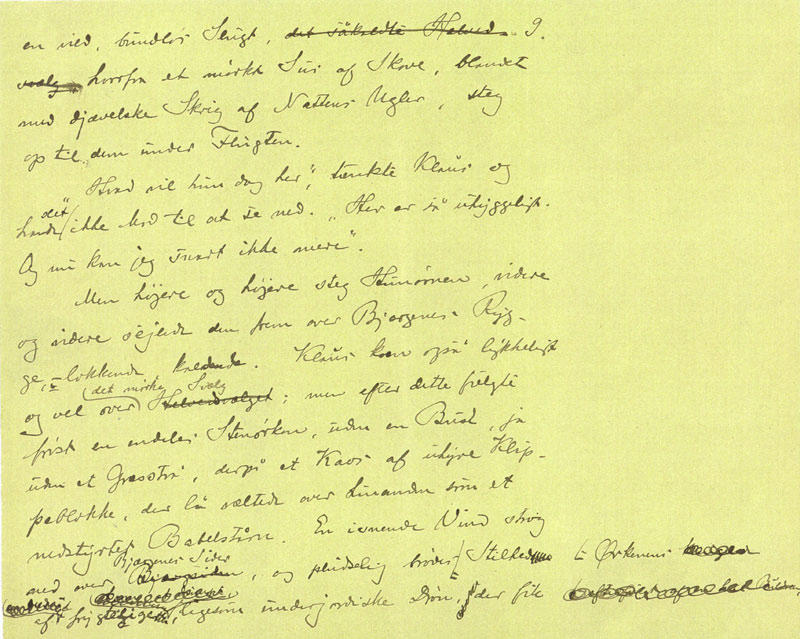 9.
en vild, bundløs Slugt, det såkaldte Helved-
svælg hvorfra et mørkt Sus af Skove, blandet
med djævelske Skrig af Nattens Ugler, steg
op til dem under Flugten.
"Hvad vil hun dog her", tænkte Klaus og
det
havde ikke Mod til at se ned. "Her er så uhyggeligt.
Og nu kan jeg snart ikke mere".
Men højere og højere steg Hunørnen, videre
og videre sejlede den frem over Bjærgenes Ryg-
ge, lokkende, kaldende. Klaus kom også lykkeligt
det mørke Svælg
og vel over Helvedsvælget; men efter dette fulgte
først en endeløs Stenørken, uden en Busk, ja
uden et Græsstrå, derpå et Kaos af uhyre Klip-
peblokke, der lå væltede over hinanden som et
nedstyrtet Babelstårn. En isnende Vind strøg
Bjærgenes Sider
ned over, og pludselig brødes Stilheden i Ørkenens
et frygteligt, ligesom underjordiske Drøn, der fik